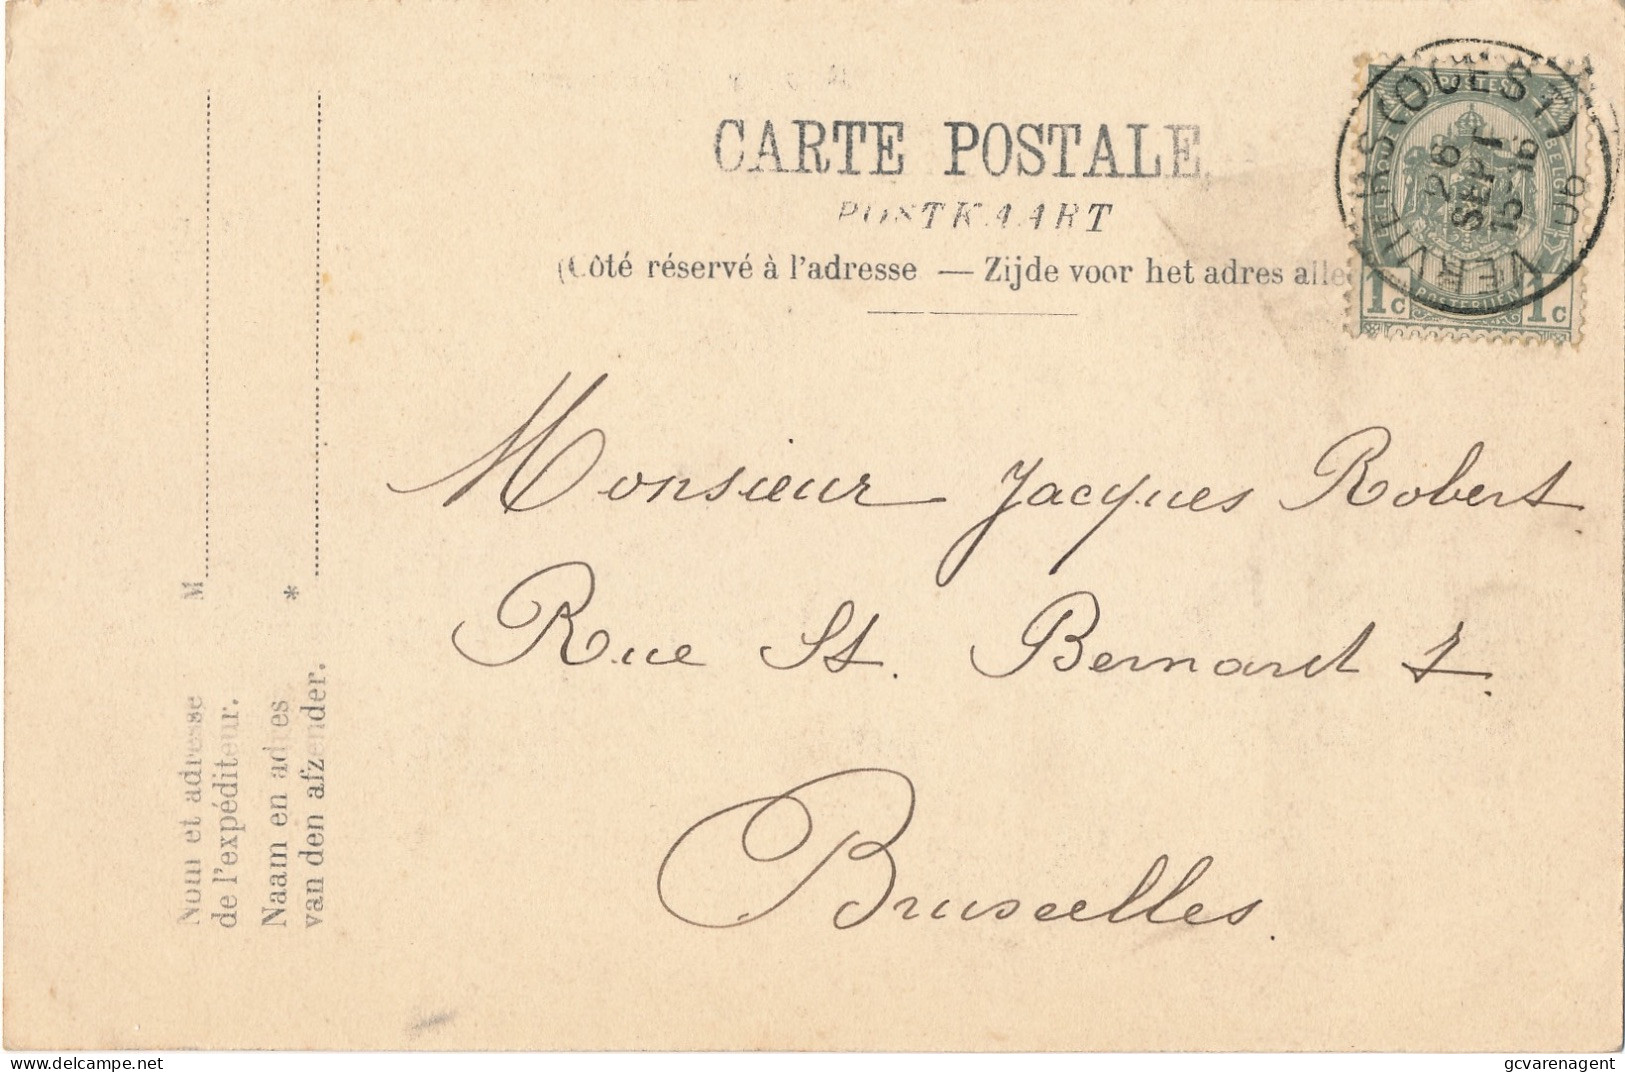 CARTE POSTALE
POSTKAART
(Côté réservé à l'adresse — Zijde voor het adres alle
POSTES BELGIQUE
POSTERIJEN
1c 1c
VERVIERS (OUEST)
26
SEPT
15-16
06
Monsieur Jacques Robert
Rue St. Bernard 1.
Bruxelles.
M
Nom et adresse
de l'expéditeur.
*
Naam en adres
van den afzender.
delcampe.net
gcvarenagent